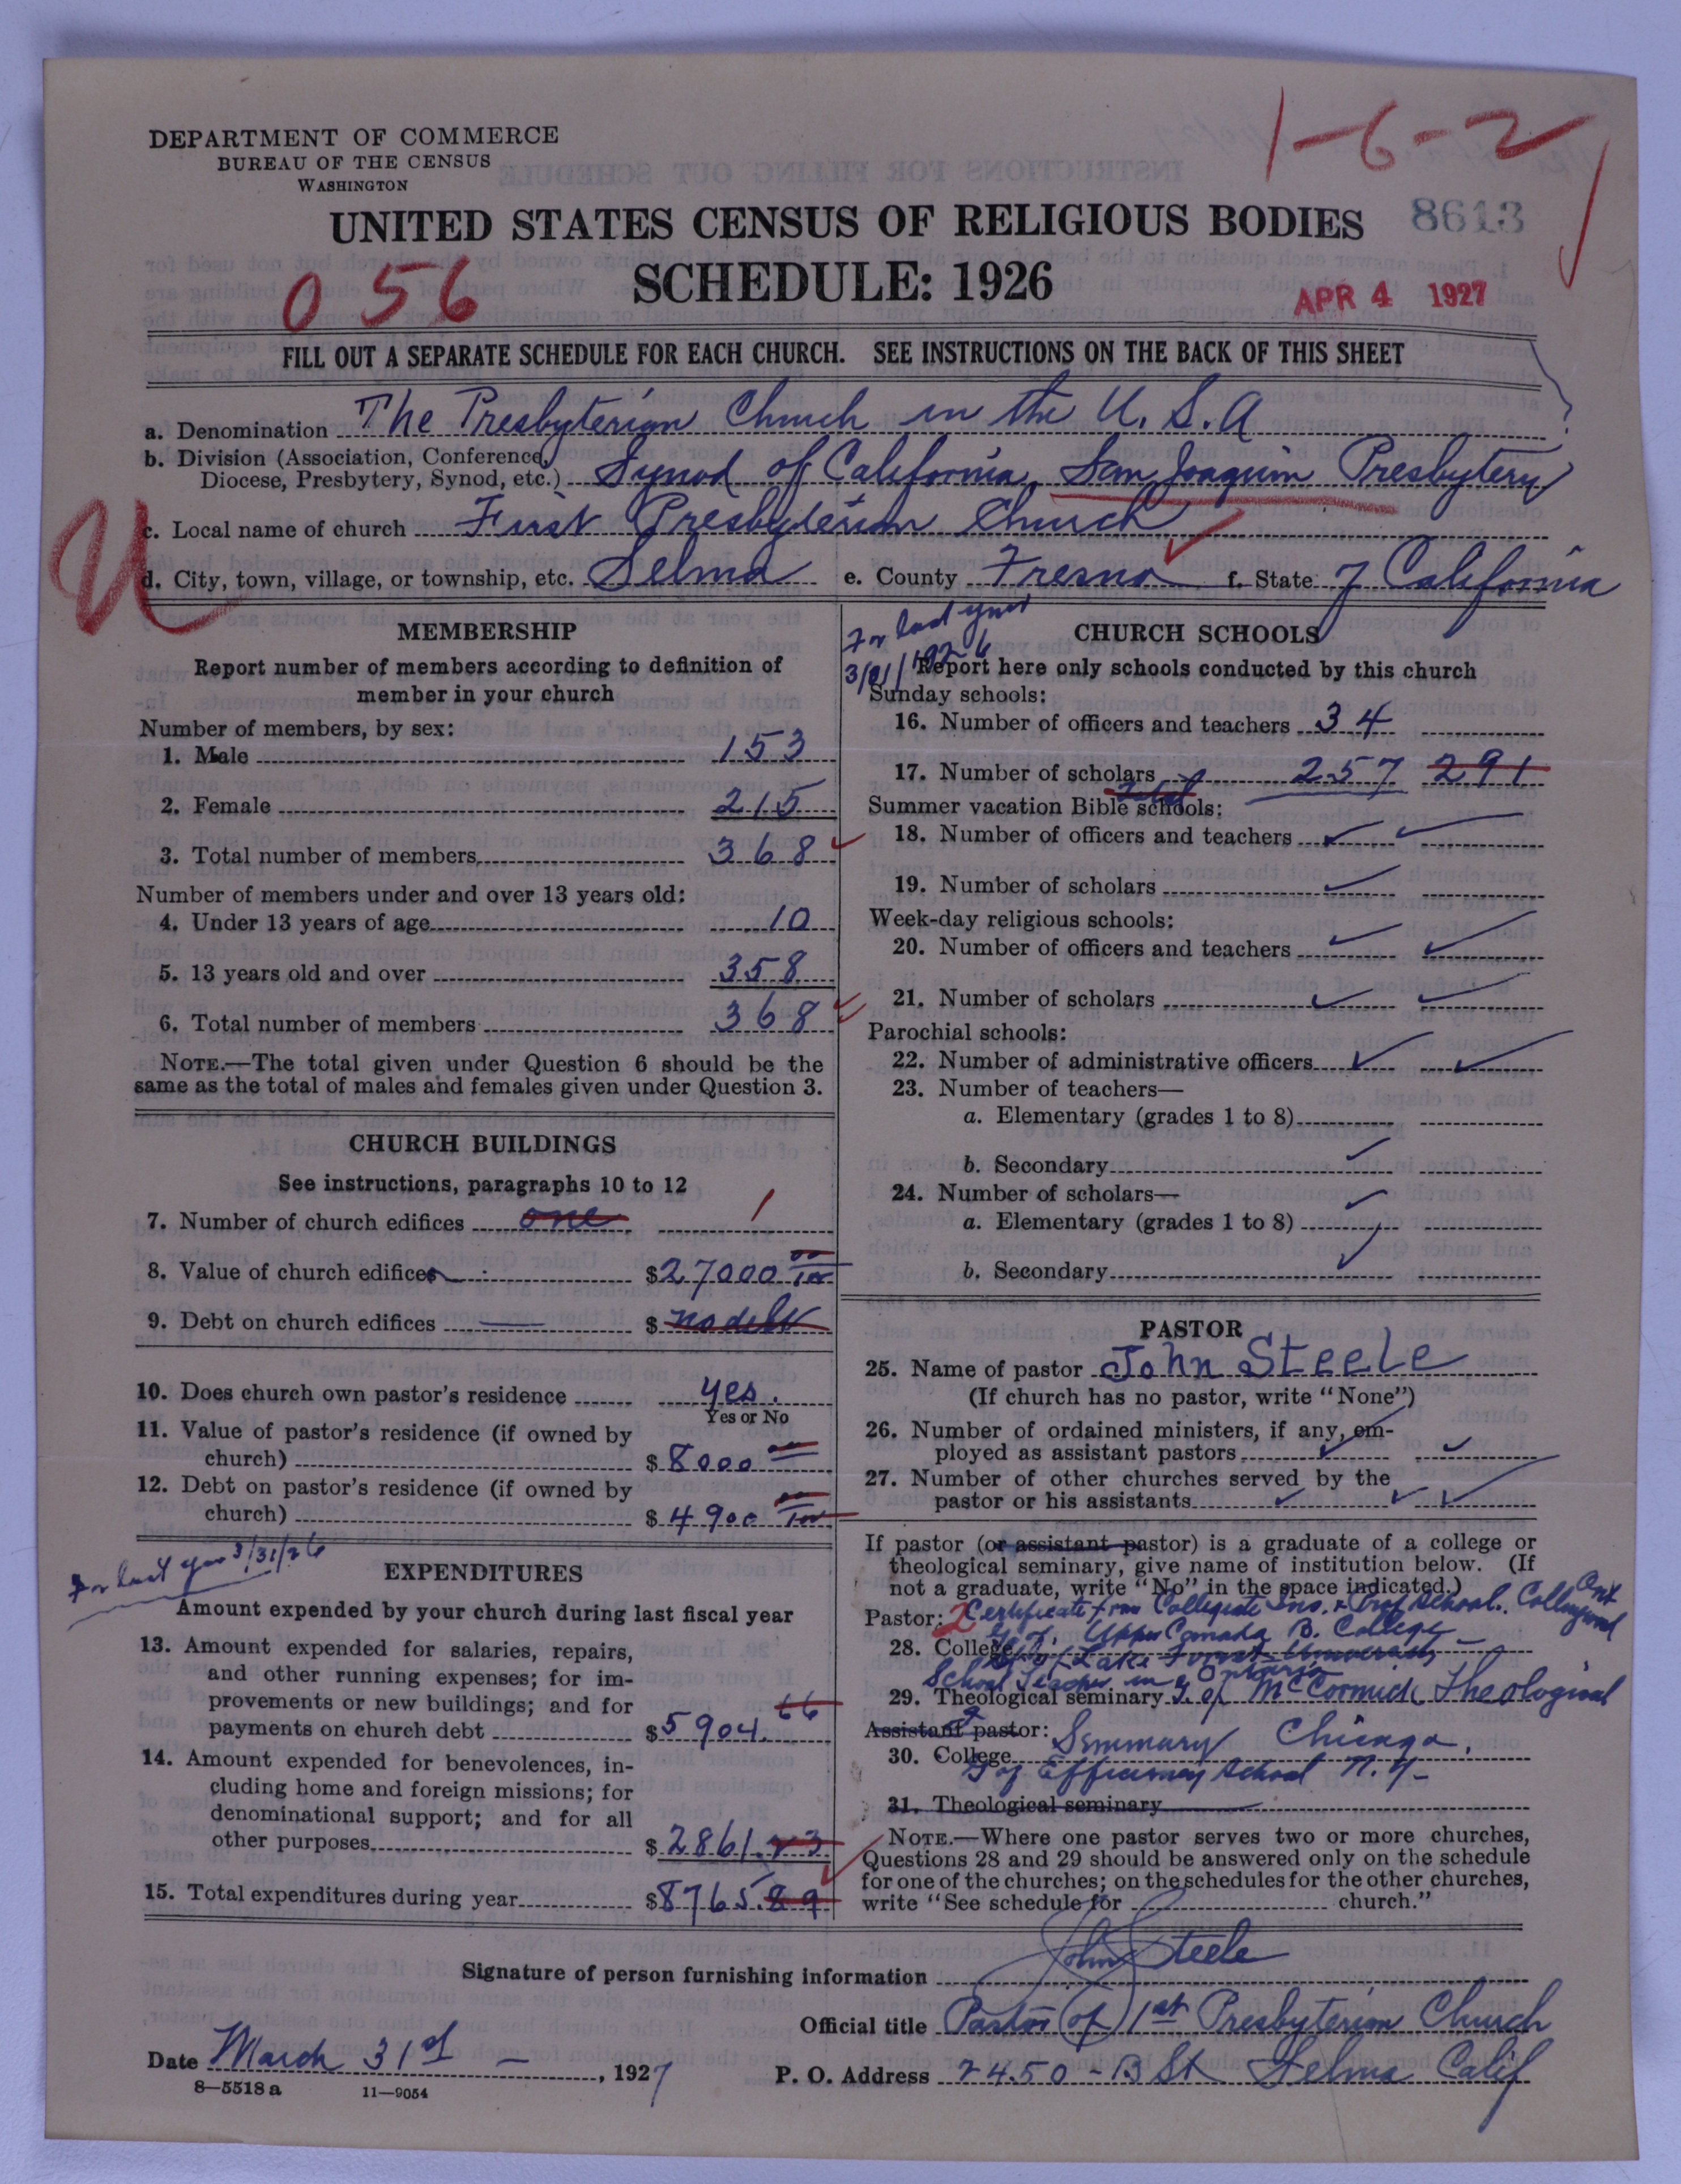 1-6-2
DEPARTMENT OF COMMERCE
BUREAU OF THE CENSUS
WASHINGTON
UNITED STATES CENSUS OF RELIGIOUS BODIES
8613
SCHEDULE: 1926
056
APR 4 1927
FILL OUT A SEPARATE SCHEDULE FOR EACH CHURCH. SEE INSTRUCTIONS ON THE BACK OF THIS SHEET
a. Denomination The Presbyterian Church in the U. S. A
b. Division (Association, Conference,
Diocese, Presbytery, Synod, etc.) Synod of California, San Joaquin Presbytery
U
c. Local name of church First Presbyterian Church
d. City, town, village, or township, etc. Selma e. County Fresno f. State of California
MEMBERSHIP
Report number of members according to definition of
member in your church
Number of members, by sex:
1. Male 153
2. Female 215
3. Total number of members 368
Number of members under and over 13 years old:
4. Under 13 years of age 10
5. 13 years old and over 358
6. Total number of members 368
NOTE.—The total given under Question 6 should be the
same as the total of males and females given under Question 3.
CHURCH BUILDINGS
See instructions, paragraphs 10 to 12
7. Number of church edifices one 1
8. Value of church edifices $27000
9. Debt on church edifices $ no debt
10. Does church own pastor's residence yes.
Yes or No
11. Value of pastor's residence (if owned by
church) $8000
12. Debt on pastor's residence (if owned by
church) $4900
For last year 3/31/26
EXPENDITURES
Amount expended by your church during last fiscal year
13. Amount expended for salaries, repairs,
and other running expenses; for im-
provements or new buildings; and for
payments on church debt $5904.66
14. Amount expended for benevolences, in-
cluding home and foreign missions; for
denominational support; and for all
other purposes $2861.23
15. Total expenditures during year $8765.89
For last year
3/31/1926
CHURCH SCHOOLS
Report here only schools conducted by this church
Sunday schools:
16. Number of officers and teachers 34
17. Number of scholars 257 291
Total
Summer vacation Bible schools:
18. Number of officers and teachers
19. Number of scholars
Week-day religious schools:
20. Number of officers and teachers
21. Number of scholars
Parochial schools:
22. Number of administrative officers
23. Number of teachers—
a. Elementary (grades 1 to 8)
b. Secondary
24. Number of scholars—
a. Elementary (grades 1 to 8)
b. Secondary
PASTOR
25. Name of pastor John Steele
(If church has no pastor, write "None")
26. Number of ordained ministers, if any, em-
ployed as assistant pastors
27. Number of other churches served by the
pastor or his assistants
If pastor (or assistant pastor) is a graduate of a college or
theological seminary, give name of institution below. (If
not a graduate, write "No" in the space indicated.)
Pastor: 2 Certificate from Collegiate Ins. & Prof School. Collingwood Ont
28. College G. of. Upper Canada B. College
Lake Forest University
School Teacher in Ontario
29. Theological seminary G. of McCormick Theological
Assistant pastor: Seminary Chicago.
30. College G of Efficiency School N. Y.
31. Theological seminary
NOTE.—Where one pastor serves two or more churches,
Questions 28 and 29 should be answered only on the schedule
for one of the churches; on the schedules for the other churches,
write "See schedule for church."
Signature of person furnishing information John Steele
Official title Pastor of 1st Presbyterian Church
Date March 31st, 1927 P. O. Address 2450 - B St Selma Calif
8—5518 a 11—9054